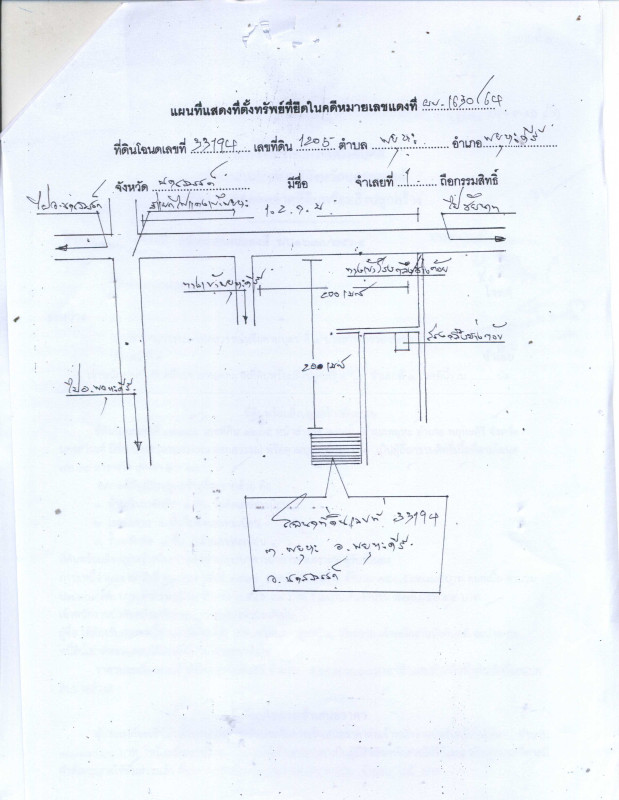 แผนที่แสดงที่ตั้งทรัพย์ที่ยึดในคดีหมายเลขแดงที่ ผบ.1630/64
ที่ดินโฉนดเลขที่ 33194 เลขที่ดิน 1205 ตำบล พยุหะ อำเภอ พยุหะคีรี
จังหวัด นครสวรรค์ มีชื่อ จำเลยที่ 1 ถือกรรมสิทธิ์
ไป จ.นครสวรรค์
1.2 ก.ม.
ไปชัยนาท
ทางเข้าพยุหะคีรี
200 เมตร
200 เมตร
ไป อ.พยุหะคีรี
โฉนดที่ดินเลขที่ 33194
ต.พยุหะ อ.พยุหะคีรี
จ.นครสวรรค์